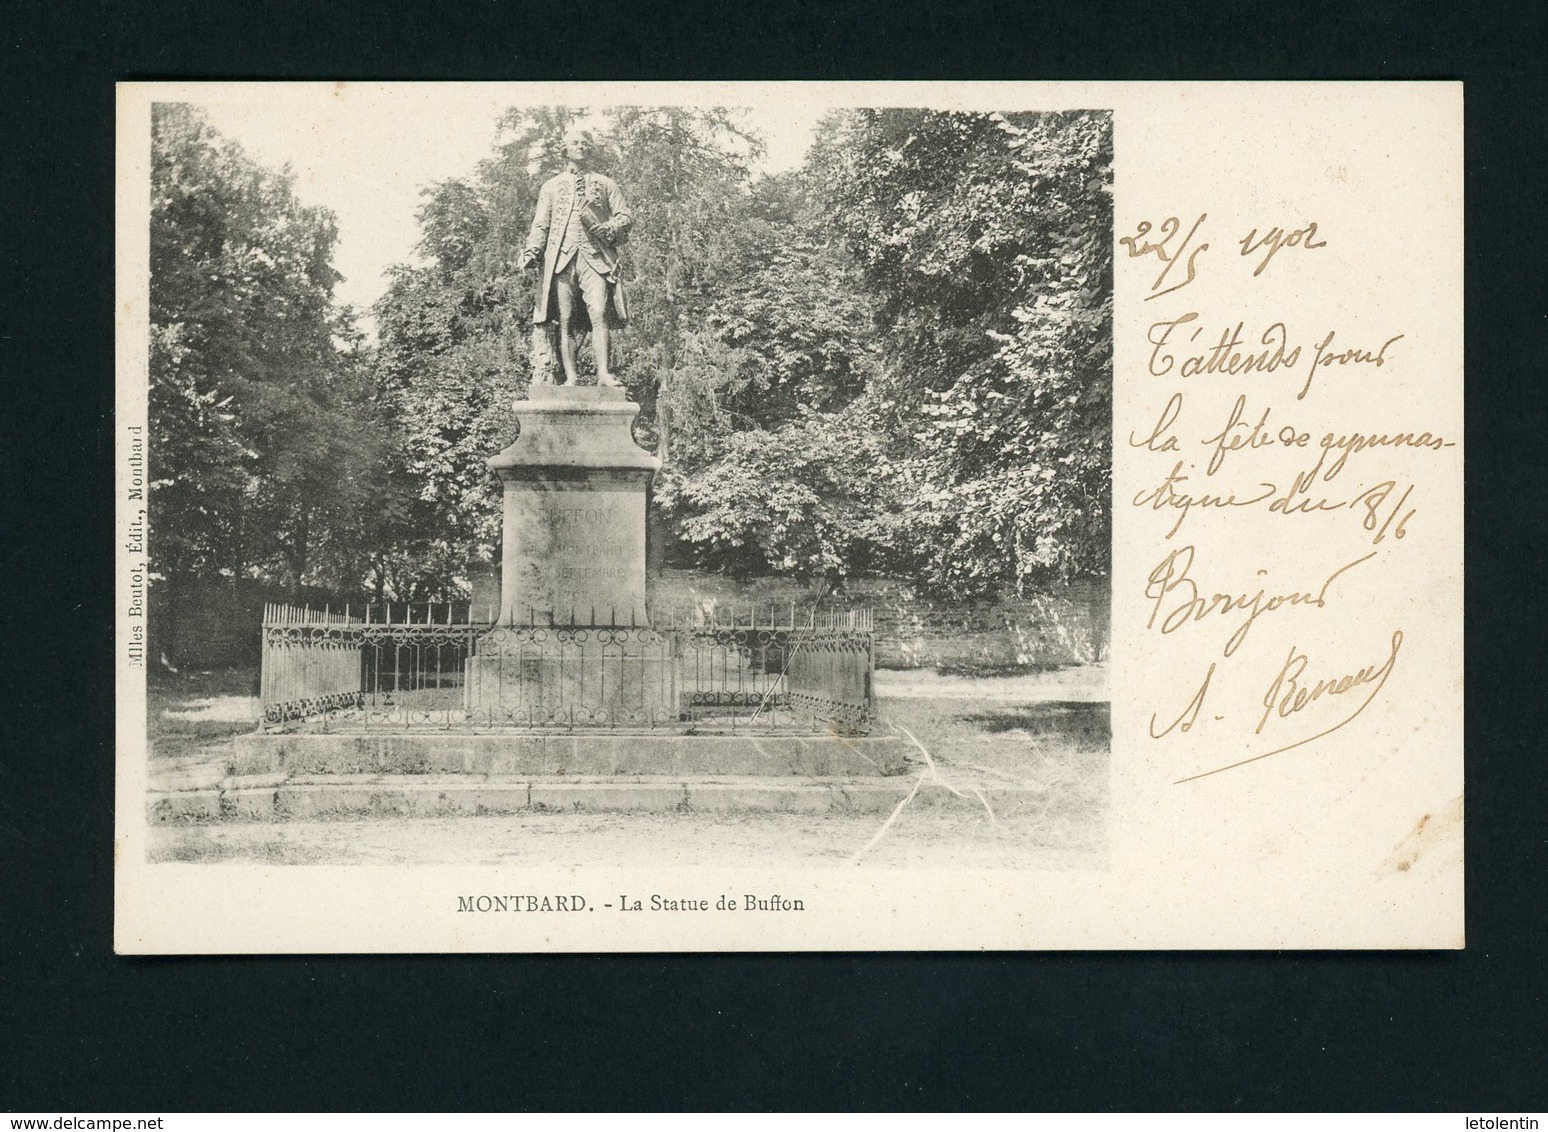 BUFFON
MONTBARD
SEPTEMBRE
Mlles Beutot, Édit., Montbard
MONTBARD. - La Statue de Buffon
22/5 1902
T'attends pour
la fête de gymnas-
tique du 8/6
Bonjour
A. Renaud
www.delcampe.net
letolentin